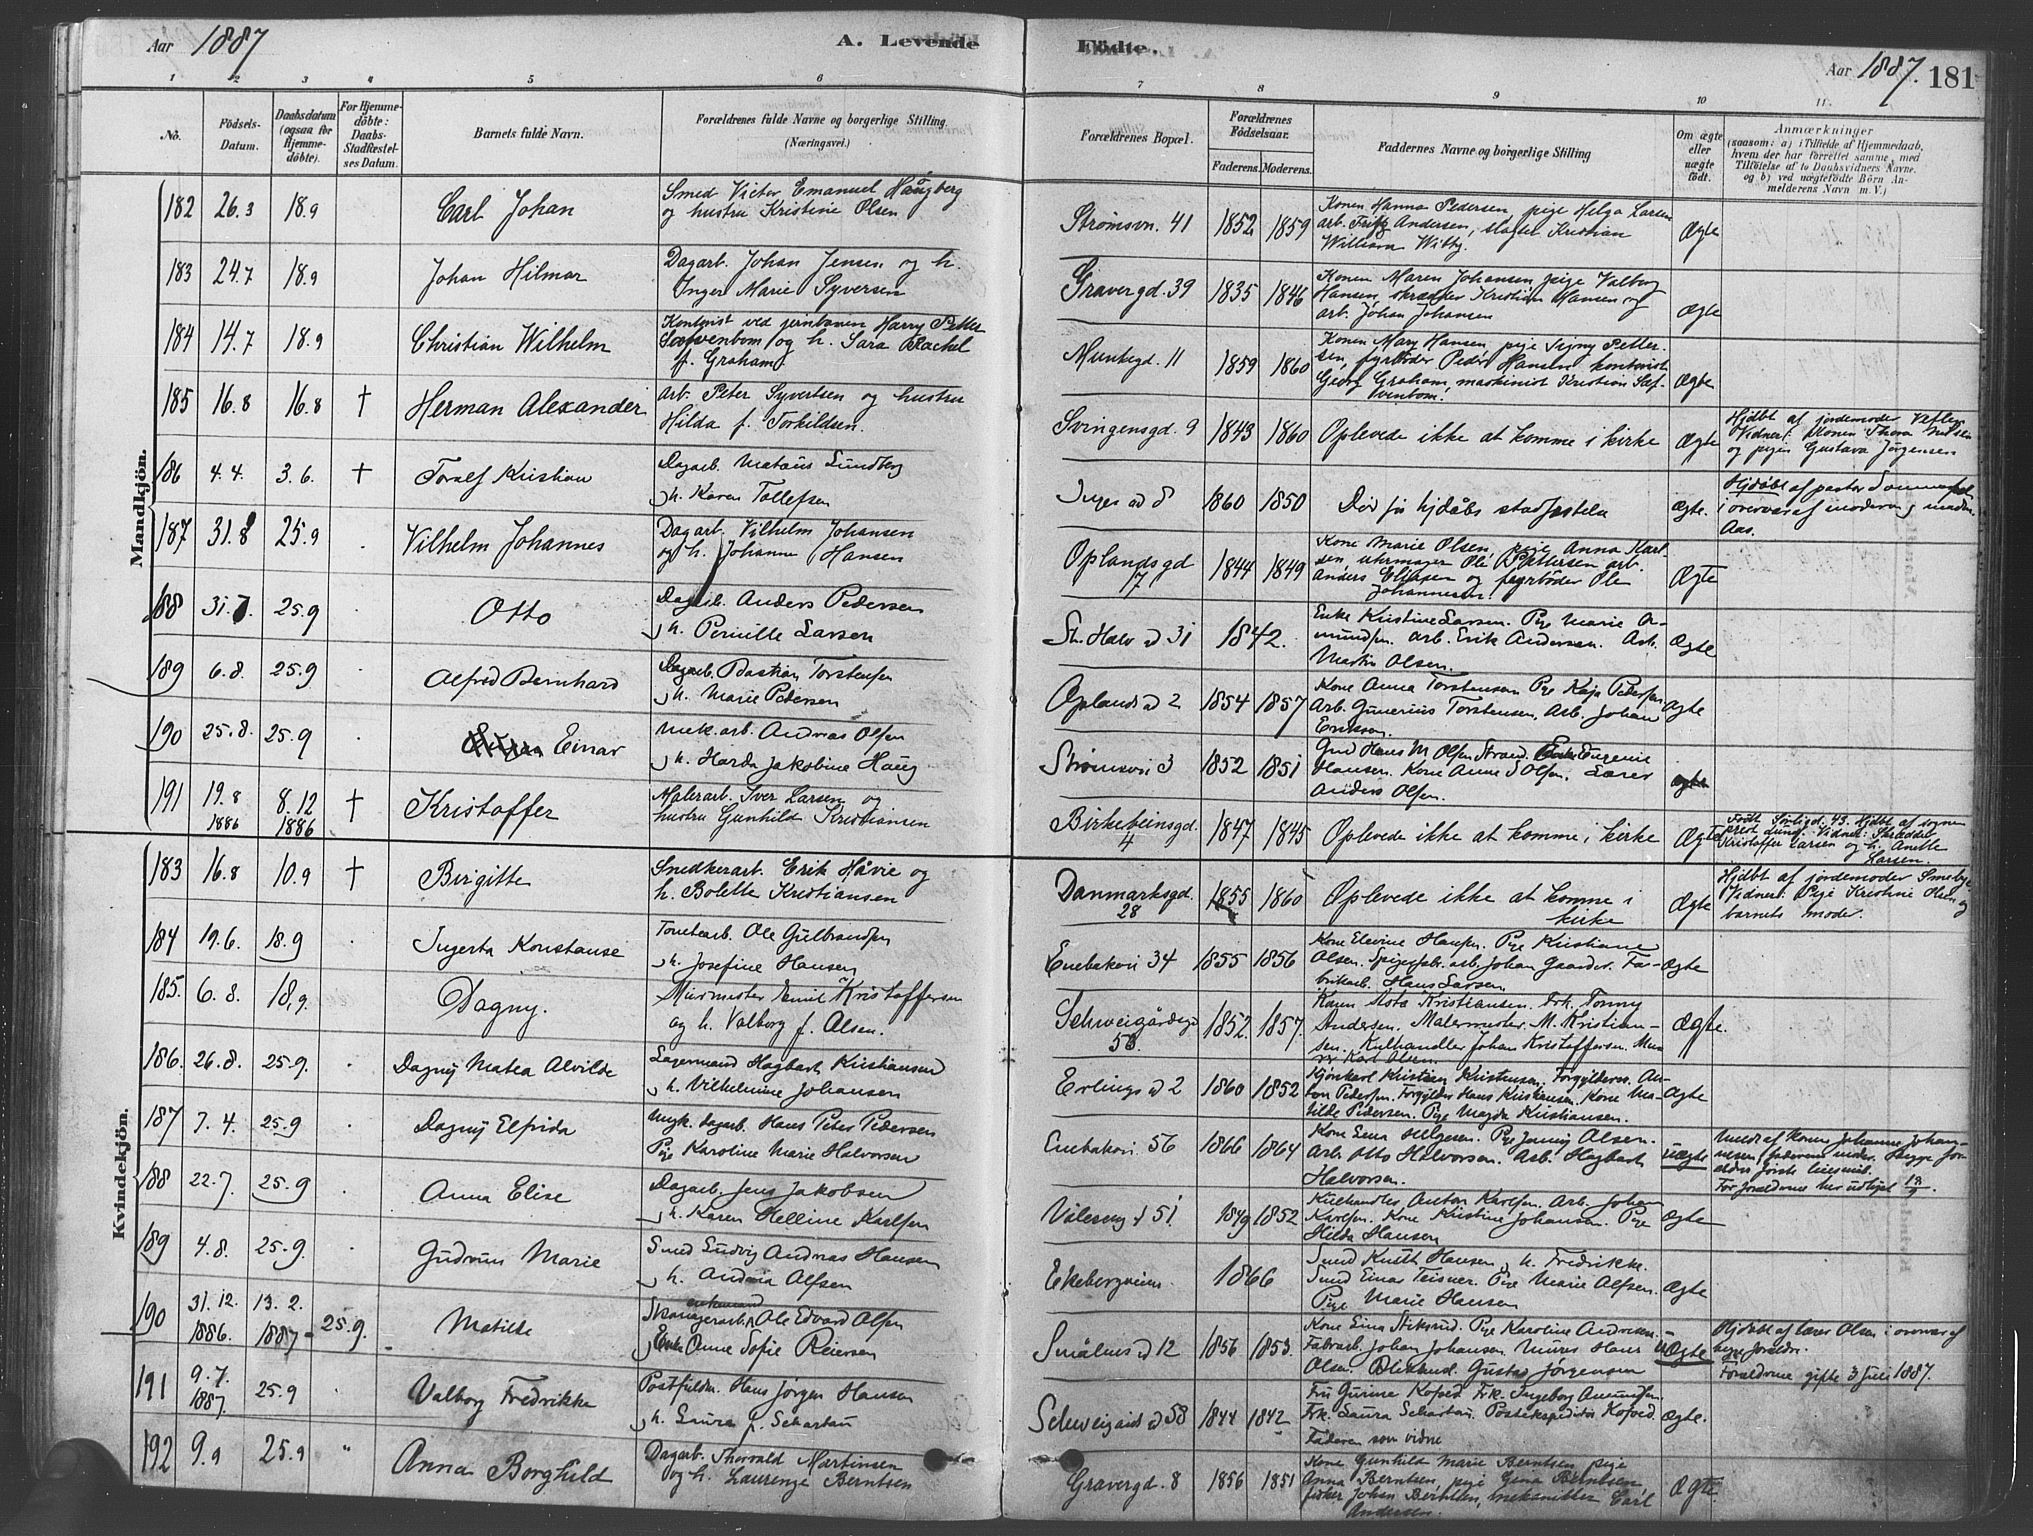 Aar 1887
A. Levende
Födte.
Aar 1887. 181
1 2 3 4 5 6 7 8 9 10 11
No.
Födsels-Datum.
Daabsdatum (ogsaa for Hjemmedöbte).
For Hjemmedöbte: Daabs-Stadfæstelses Datum.
Barnets fulde Navn.
Forældrenes fulde Navne og borgerlige Stilling. (Næringsvei.)
Forældrenes Bopæl.
Forældrenes Födselsaar.
Faderens. Moderens.
Faddernes Navne og borgerlige Stilling
Om ægte eller uægte födt.
Anmærkninger
(saasom: a) i Tilfælde af Hjemmedaab,
hvem der har forrettet samme, med
Tilföielse af to Daabsvidners Navne.
og b) ved uægtefödte Börn An-
melderens Navn m. V.)
Mandkjön.
182 26.3 18.9 Carl Johan
Smed Victor Emanuel Haugberg
og hustru Kristine Olsen
Strømsvn. 41 1852 1859
Konen Hanna Pedersen, pige Helga Larsen
arb. Fritz Andersen, slagter Kristian
William Wiby.
Ægte
183 24.7 18.9 Johan Hilmar
Dagarb. Johan Jensen og h.
Inger Marie Syversen
Gravergd. 39 1835 1846
Konen Maren Johansen, pige Valborg
Hansen, skrædder Kristian Hansen og
arb. Johan Johansen
Ægte
184 14.7 18.9 Christian Wilhelm
Kontorist ved jernbanen Harry Petter
og h. Sara Rachel
f. Graham
Munkegd. 11 1859 1860
Konen Mary Hansen, pige Signy Petter-
sen, fyrbøder Peder Hansen, kontorist
Georg Graham, maskinist Kristian
Ægte
185 16.8 16.8 † Herman Alexander
Arb. Peter Syvertsen og hustru
Hilda f. Torkildsen.
Svingensgd. 9 1843 1860 Oplevede ikke at komme i kirke Ægte
Hjdbt af jordemoder
Vidner: Konen Thora Nilsen
og pigen Gustava Jørgensen
186 4.4. 3.6. † Toralf Kristian
Dagarb. Mataus Lundberg
h. Karen Tollefsen
Inges gd 8 1860 1850 Død før hjdåbs stadfæstelse Ægte.
Hjdøbt af pastor
i overvær af moderen og madm.
Aas.
187 31.8 25.9 Vilhelm Johannes
Dagarb. Vilhelm Johansen
og h. Johanne Hansen
Oplandsgd
17 1844 1849
Kone Marie Olsen, pige Anna Karl-
sen, urmager Ole Pettersen arb.
Anders Eliasen og fyrbøder Ole
Johannesen.
Ægte
188 31.7. 25.9 Otto
Dagarb. Anders Pedersen
h. Pernille Larsen
St. Halv gd 31 1842.
Enke Kristine Larsen. Pige Marie A-
mundsen. Arb. Erik Andersen. Arb.
Martin Olsen.
Ægte
189 6.8. 25.9 Alfred Bernhard
Dagarb. Bastian Torstensen
h. Marie Pedersen
Oplands gd 2 1854 1857
Kone Anna Torstensen Pige Kaja Pedersen
Arb. Gunerius Torstensen, Arb. Johan
Erikson.
Ægte
190 25.8. 25.9 Einar
Mek. arb. Andreas Olsen
h. Harda Jakobine Haug
Strømsvn 3 1852 1851
Hans M Olsen Eugenie
Hansen. Kone Anne S Olsen. Lærer
Anders Olsen.
ægte
191 19.8 8.12 † Kristoffer
1886 1886
Malerarb. Iver Larsen og
hustru Gunhild Kristiansen
Birkebeinsgd.
4 1847 1845 Oplevede ikke at komme i kirke Ægte
Født 43. Hjdbt af sogne
prest Lund. Vidner: Skrædder
Kristoffer Larsen og h. Anette
Larsen.
Kvindekjön.
183 16.8 10.9 † Birgitte
Snedkerarb. Erik Håvie og
h. Bolette Kristiansen
Danmarksgd.
28 1855 1860 Oplevede ikke at komme i
kirke
Ægte
Hjdbt af jordemoder Smeby.
Vidner: Pige Kristine Olsen og
barnets moder.
184 19.6. 18.9 Ingerta Konstanse
Tomtearb. Ole Gulbrandsen
h. Josefine Hansen
Enebakvn 34 1855 1856
Kone Elevine Hansen. Pige Kristiane
Olsen. arb. Johan Gaarder. Fa-
brikarb. Hans Larsen
Ægte
185. 6.8. 18.9. Dagny.
Murmester Emil Kristoffersen
og h. Valborg f. Olsen.
Schweigårdsgd
53. 1852. 1857.
Kristiansen. Frk. Tonny
Andersen. Malermester. M. Kristian-
sen. Kulhandler Johan Kristoffersen. Mu-
rer Karl Olsen.
Ægte.
186. 26.8. 25.9. Dagny Matea Alvilde
Lagermand Hagbart Kristiansen
h. Vilhelmine Johansen
Erlings gd 2 1860 1852
Kristian Kristensen. Forgylder An-
ton Pedersen. Forgylder Hans Kristiansen. Kone Ma-
tilde Pedersen. Pige Magda Kristiansen.
Ægte
187 7.4. 25.9 Dagny Elfrida
dagarb. Hans Peter Pedersen
Pige Karoline Marie Halvorsen
Enebakvn. 56 1866 1864
Kone Lina Helgesen. Pige Jenny Olsen.
Arb. Otto Halvorsen. Arb. Hagbart
Halvorsen.
uægte
Meldt af Konen Johanne Johan-
nesen, faderens moder. Begge for-
ældres første leiermål.
188 22.7. 25.9 Anna Elise
Dagarb. Jens Jakobsen
h. Karen Helline Karlsen
Vålereng gd 51. 1849 1852
Kulhandler Anton Karlsen. Arb. Johan
Karlsen. Kone Kristine Johansen. Pige
Hilda Hansen
Ægte
189 4.8. 25.9. Gudrun Marie
Smed Ludvig Andreas Hansen
h. Andrea Olsen
Ekebergveien. 1866
Smed Knutt Hansen, h. Fredrikke.
Smed Einar Teisner. Pige Marie Olsen.
Pige Marie Hansen
Ægte
190 31.12. 13.2. 25.9. Matilde
1886. 1887
enkemand
Ole Edvard Olsen
Enke Anne Sofie Reiersen
Smålens gd 12 1856 1853.
Kone Lina Stiksrud. Pige Karoline Andresen.
Fabrarb. Johan Johansen Murer Hans
Olsen. Gustav Jørgensen
uÆgte
Hjdøbt af lærer Olsen i overvær af
begge forældre.
Forældrene gifte 3 Juli 1887.
191 9.7. 25.9 Valborg Fredrikke
1887.
Hans Jørgen Hansen
h. Laura f. Schartau
Schweigårds gd 58 1844 1842
Fru Gunna Kofoed. Frk. Ingeborg Amundsen.
Frk. Laura Schartau. Postekspeditør Kofoed.
Faderen som vidne
Ægte.
192 9.9 25.9 " Anna Borghild
Dagarb. Thorvald Martinsen
og h. Laurenze Berntsen
Gravergd. 8 1856 1851
Kone Gunhild Marie Berntsen, pige
Anna Berntsen, pige Gina Berntsen
fisker Johan Berntsen, mekaniker Carl
Andersen.
Ægte.